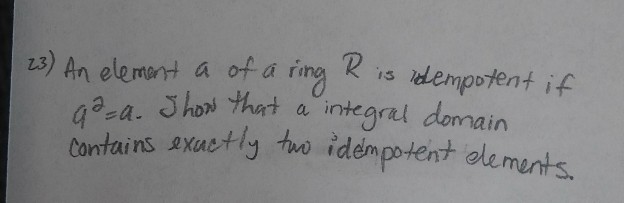 23) An element a of a ring R is idempotent if
a²=a. Show that a integral domain
contains exactly two idempotent elements.